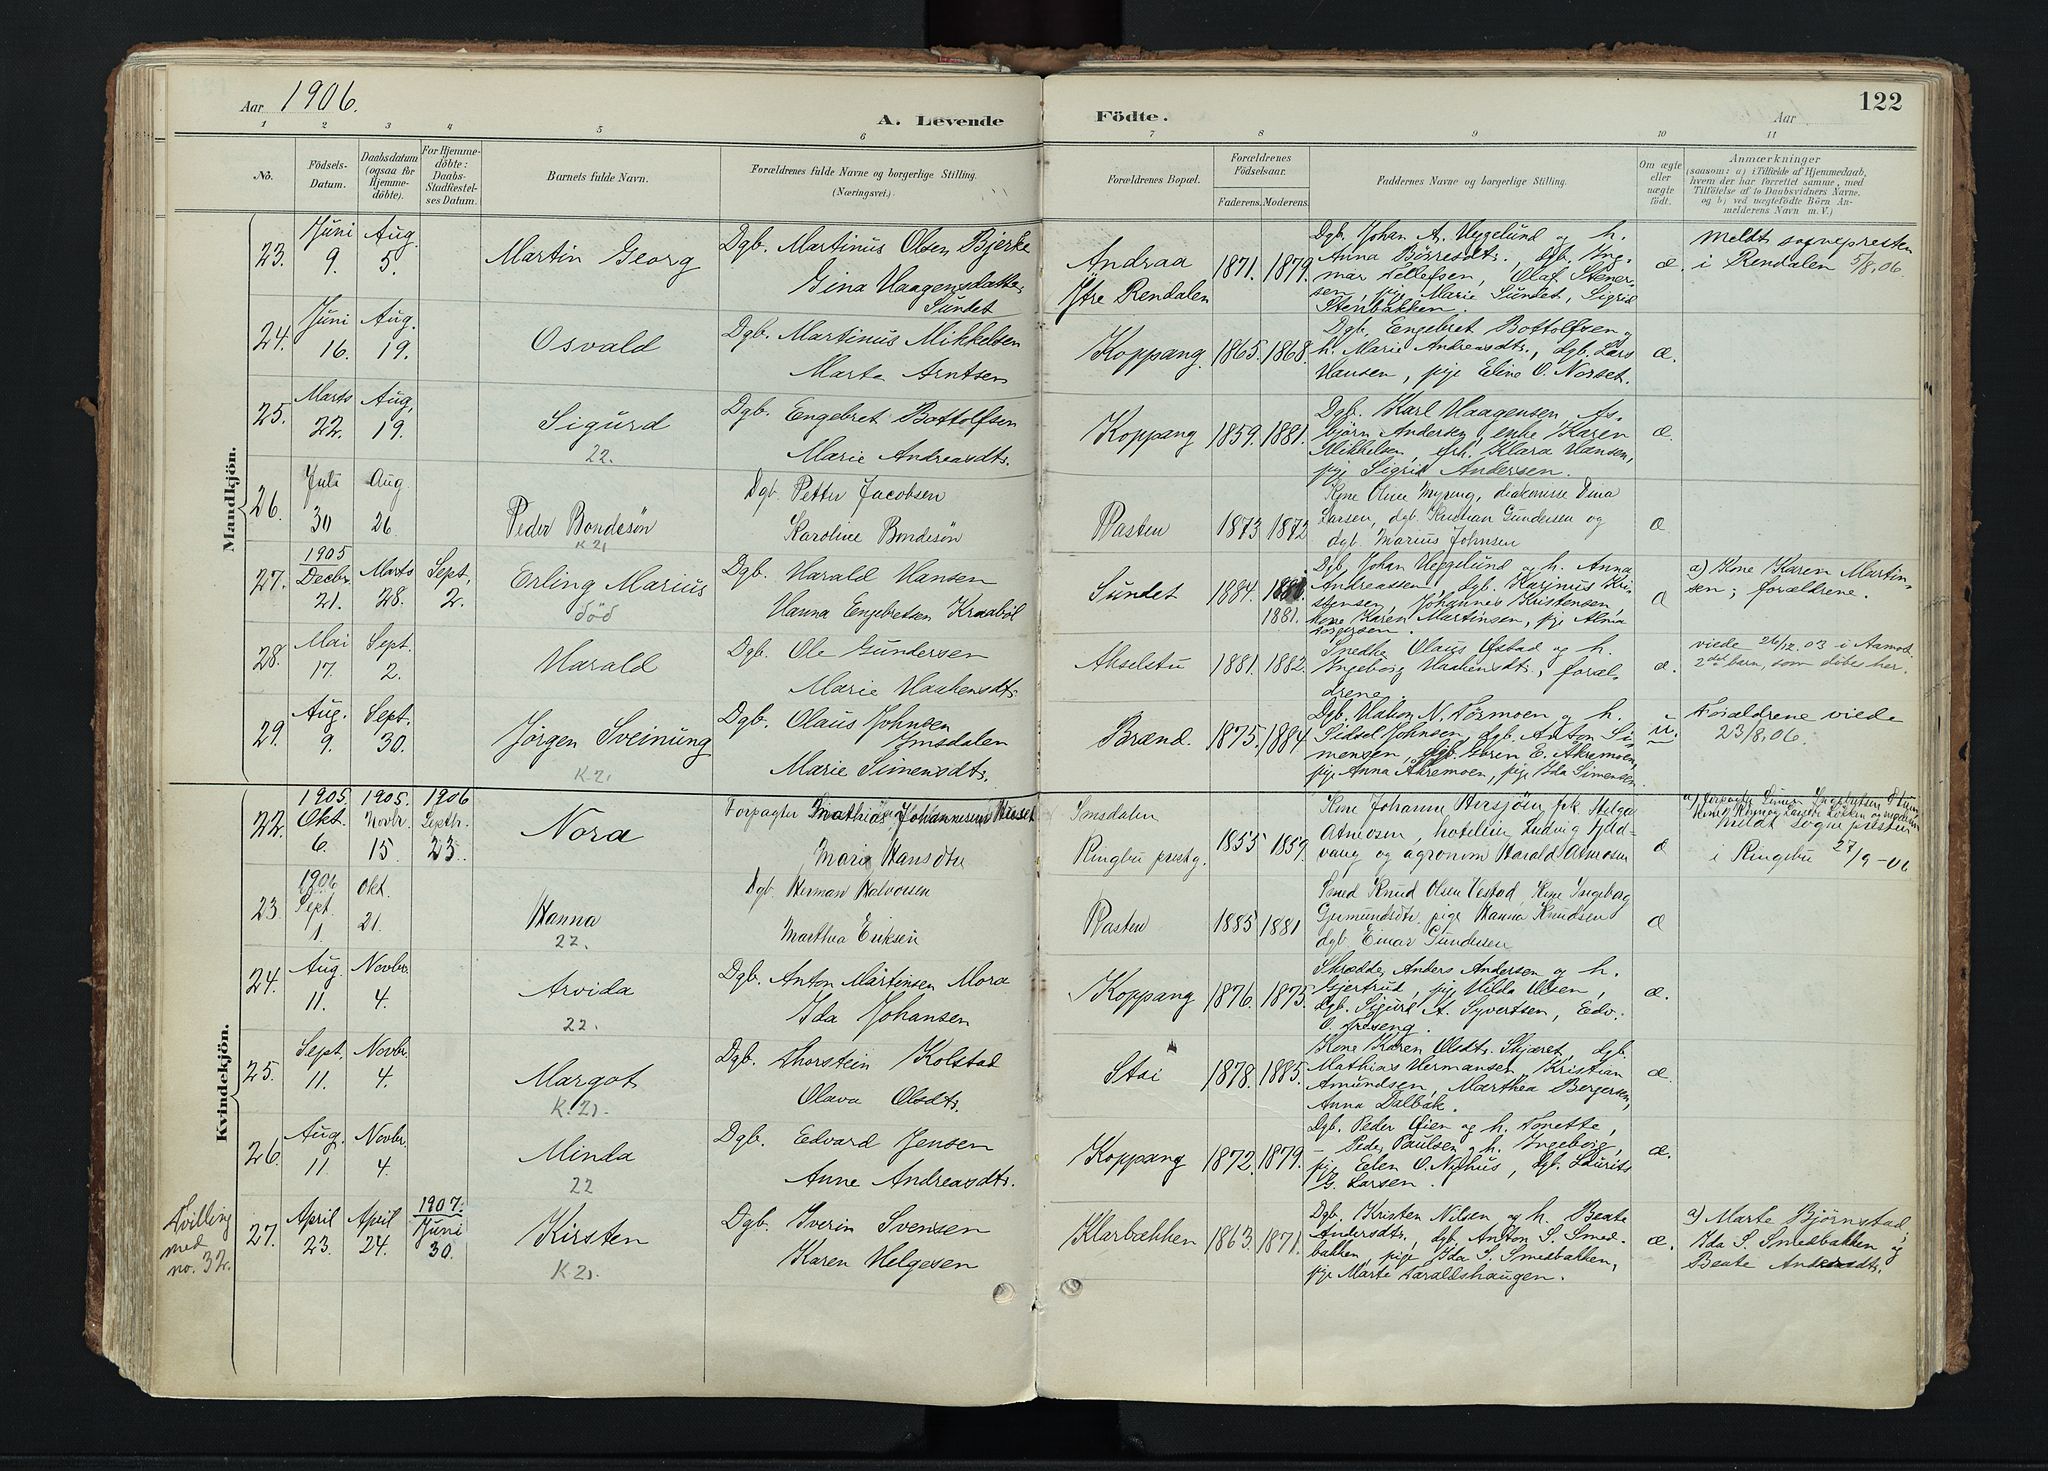 Aar 1906.
A. Levende Födte.
122
Aar
1 2 3 4 5 6 7 8 9 10 11
No.
Födsels-Datum.
Daabsdatum (ogsaa for Hjemmedöbte).
For Hjemmedöbte: Daabs-Stadfæstelses Datum.
Barnets fulde Navn.
Forældrenes fulde Navne og borgerlige Stilling. (Næringsvei.)
Forældrenes Bopæl.
Forældrenes Födselsaar.
Faderens. Moderens.
Faddernes Navne og borgerlige Stilling.
Om ægte eller uægte födt.
Anmærkninger
(saasom: a) i Tilfælde af Hjemmedaab, hvem der har forrettet samme, med Tilföielse af to Daabsvidners Navne, og b) ved uægtefödte Börn Anmelderens Navn m. V.)
Mandkjön.
23. Juni 9. Aug. 5.
Martin Georg
Dgb. Martinus Olsen Bjerke
Gina Haagensdatter Sundet
Andraa
Ytre Rendalen
1871. 1879.
Dgb. Johan A. Heggelund og h.
Anna Börresdtr., dgb. Ing-
mar Tellefsen, Olaf Stener-
sen, pige Marie Sundet, Sigrid
Stenbakken.
æ.
Meldt sognepresten
i Rendalen 5/8.06.
24. Juni 16. Aug. 19.
Osvald
Dgb. Martinus Mikkelsen
Marte Arntsen
Koppang.
1865. 1868.
Dgb. Engebret Bottolfsen og
h. Marie Andreasdtr., dgb. Lars
Hansen, pige Eline O. Norset.
æ.
25. Marts 22. Aug. 19.
Sigurd
22.
Dgb. Engebret Bottolfsen
Marie Andreasdtr.
Koppang
1859. 1881.
Dgb. Karl Haagensen, As-
björn Andersen, enke Karen
Mikkelsen, Klara Hansen,
pige Sigrid Andersen.
æ.
26. Juli 30 Aug 26
Peder Bondesön
K 21
Dgb. Petter Jacobsen
Karoline Bondesön
Rasten
1873 1872
Kone Oline Myreng, diakonisse Dina
Larsen, dgb. Kristian Gundersen og
dgb. Marius Johnsen
æ
27. 1905 Decbr. 21. Marts 28. Sept. 2.
Erling Marius
död
Dgb. Harald Hansen
Hanna Engebretsen Kraaböl
Sundet
1884.
1881.
Dgb. Johan Heggelund og h. Anna
Andreassen, dgb. Karinus Kri-
stensen, Johannes Kristensen,
kone Karen Martinsen, pige Alma
Torgersen.
æ
a) Kone Karen Martin-
sen; forældrene.
28. Mai 17. Sept. 2.
Harald
Dgb. Ole Gundersen
Marie Haakensdtr.
Akselstu
1881. 1882.
Snedker Olaus Östad og h.
Ingeborg Haakensdtr., foræl-
drene.
æ.
viede 26/12.03 i Aamot.
2det barn, som döbes her.
29. Aug. 9. Sept. 30.
Jörgen Sveinung
K 21
Dgb. Olaus Johnsen
Imsdalen
Marie Simensdtr.
Brænd.
1875. 1884.
Dgb. Hakon N. Törmoen og h.
Sidsel Johnsen, dgb. Anton Si-
mensen, dgb. Gören E. Akremoen,
pige Anna Akremoen, pige Ida Simensen.
u.
Forældrene viede
23/8.06.
Kvindekjön.
22. 1905. Okt. 6. 1905. Novbr. 15 1906 Septbr. 23.
Nora
Forpagter Mathias Johannesen
Marie Hansdtr
Imsdalen
Ringebu prestg.
1855 1859.
Kone Johanne Hersjöen, frk Helga
Atneosen, hotelier Ludvig
vang og agronom Harald Atneosen
æ
meldt sogne presten
i Ringebu 27/9-06
23. 1906 Sept. 1. Okt. 21.
Hanna
22.
Dgb. Herman Halvorsen
Marthea Eriksen
Rasten
1885 1881
Smed Knud Olsen Vestad, Kone Ingeborg
Gjermundsdtr, pige Hanna Knudsen
dgb. Einar Gundersen
æ
24. Aug 11. Novbr. 4.
Arvida
22.
Dgb. Anton Martinsen Mora
Ida Johansen
Koppang
1876. 1875.
Skrædder Anders Andersen og h.
Gjertrud, pige Hilda Olsen,
dgb. Sigurd A. Syvertsen, Edv.
O. Tröseng.
æ.
25. Sept. 11. Novbr. 4.
Margot
K. 21.
Dgb. Thorstein Kolstad
Olava Olsdtr.
Stai
1878. 1885.
Kone Karen Olsdtr. Skjæret, dgb.
Mathias Hermansen, Kristian
Amundsen, Marthea Bergersen,
Anna Dalbak.
æ.
26. Aug. 11. Novbr. 4.
Minda
22
Dgb. Edvard Jensen
Anne Andreasdtr.
Koppang
1872. 1879.
Dgb. Peder Öien og h. Tonette,
- Peder Paulsen og h. Ingeborg,
pige Eelen O. Nyhus, dgb. Laurits
G. Larsen.
æ.
Tvilling
med
no. 32.
27. April 23. April 24. 1907. Juni 30.
Kirsten
K 21.
Dgb. Iverin Svensen
Karen Helgesen
Klarbækken
1863. 1871.
Dgb. Kristen Nilsen og h. Beate
Andersdtr., dgb. Anton S. Smed-
bakken, pige Ida S. Smedbakken,
pige Marte Haraldshaugen.
æ.
a) Marte Björnstad;
Ida S. Smedbakken og
Beate Andersdtr.